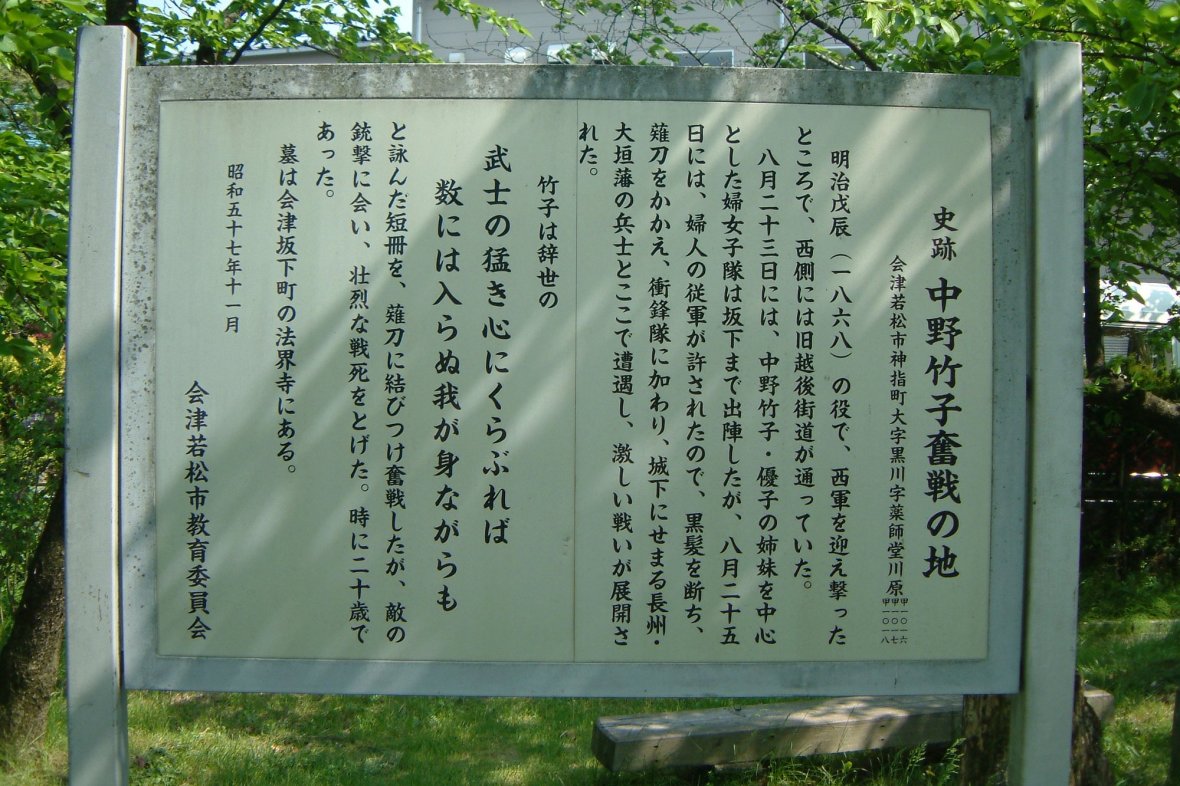 史跡 中野竹子奮戦の地
会津若松市神指町大字黒川字薬師堂川原甲一〇一六
甲一〇一七
甲一〇一八
明治戊辰(一八六八)の役で、西軍を迎え撃った
ところで、西側には旧越後街道が通っていた。
八月二十三日には、中野竹子・優子の姉妹を中心
とした婦女子隊は坂下まで出陣したが、八月二十五
日には、婦人の従軍が許されたので、黒髪を断ち、
薙刀をかかえ、衝鋒隊に加わり、城下にせまる長州・
大垣藩の兵士とここで遭遇し、激しい戦いが展開さ
れた。
竹子は辞世の
武士の猛き心にくらぶれば
数には入らぬ我が身ながらも
と詠んだ短冊を、薙刀に結びつけ奮戦したが、敵の
銃撃に会い、壮烈な戦死をとげた。時に二十歳で
あった。
墓は会津坂下町の法界寺にある。
昭和五十七年十一月
会津若松市教育委員会